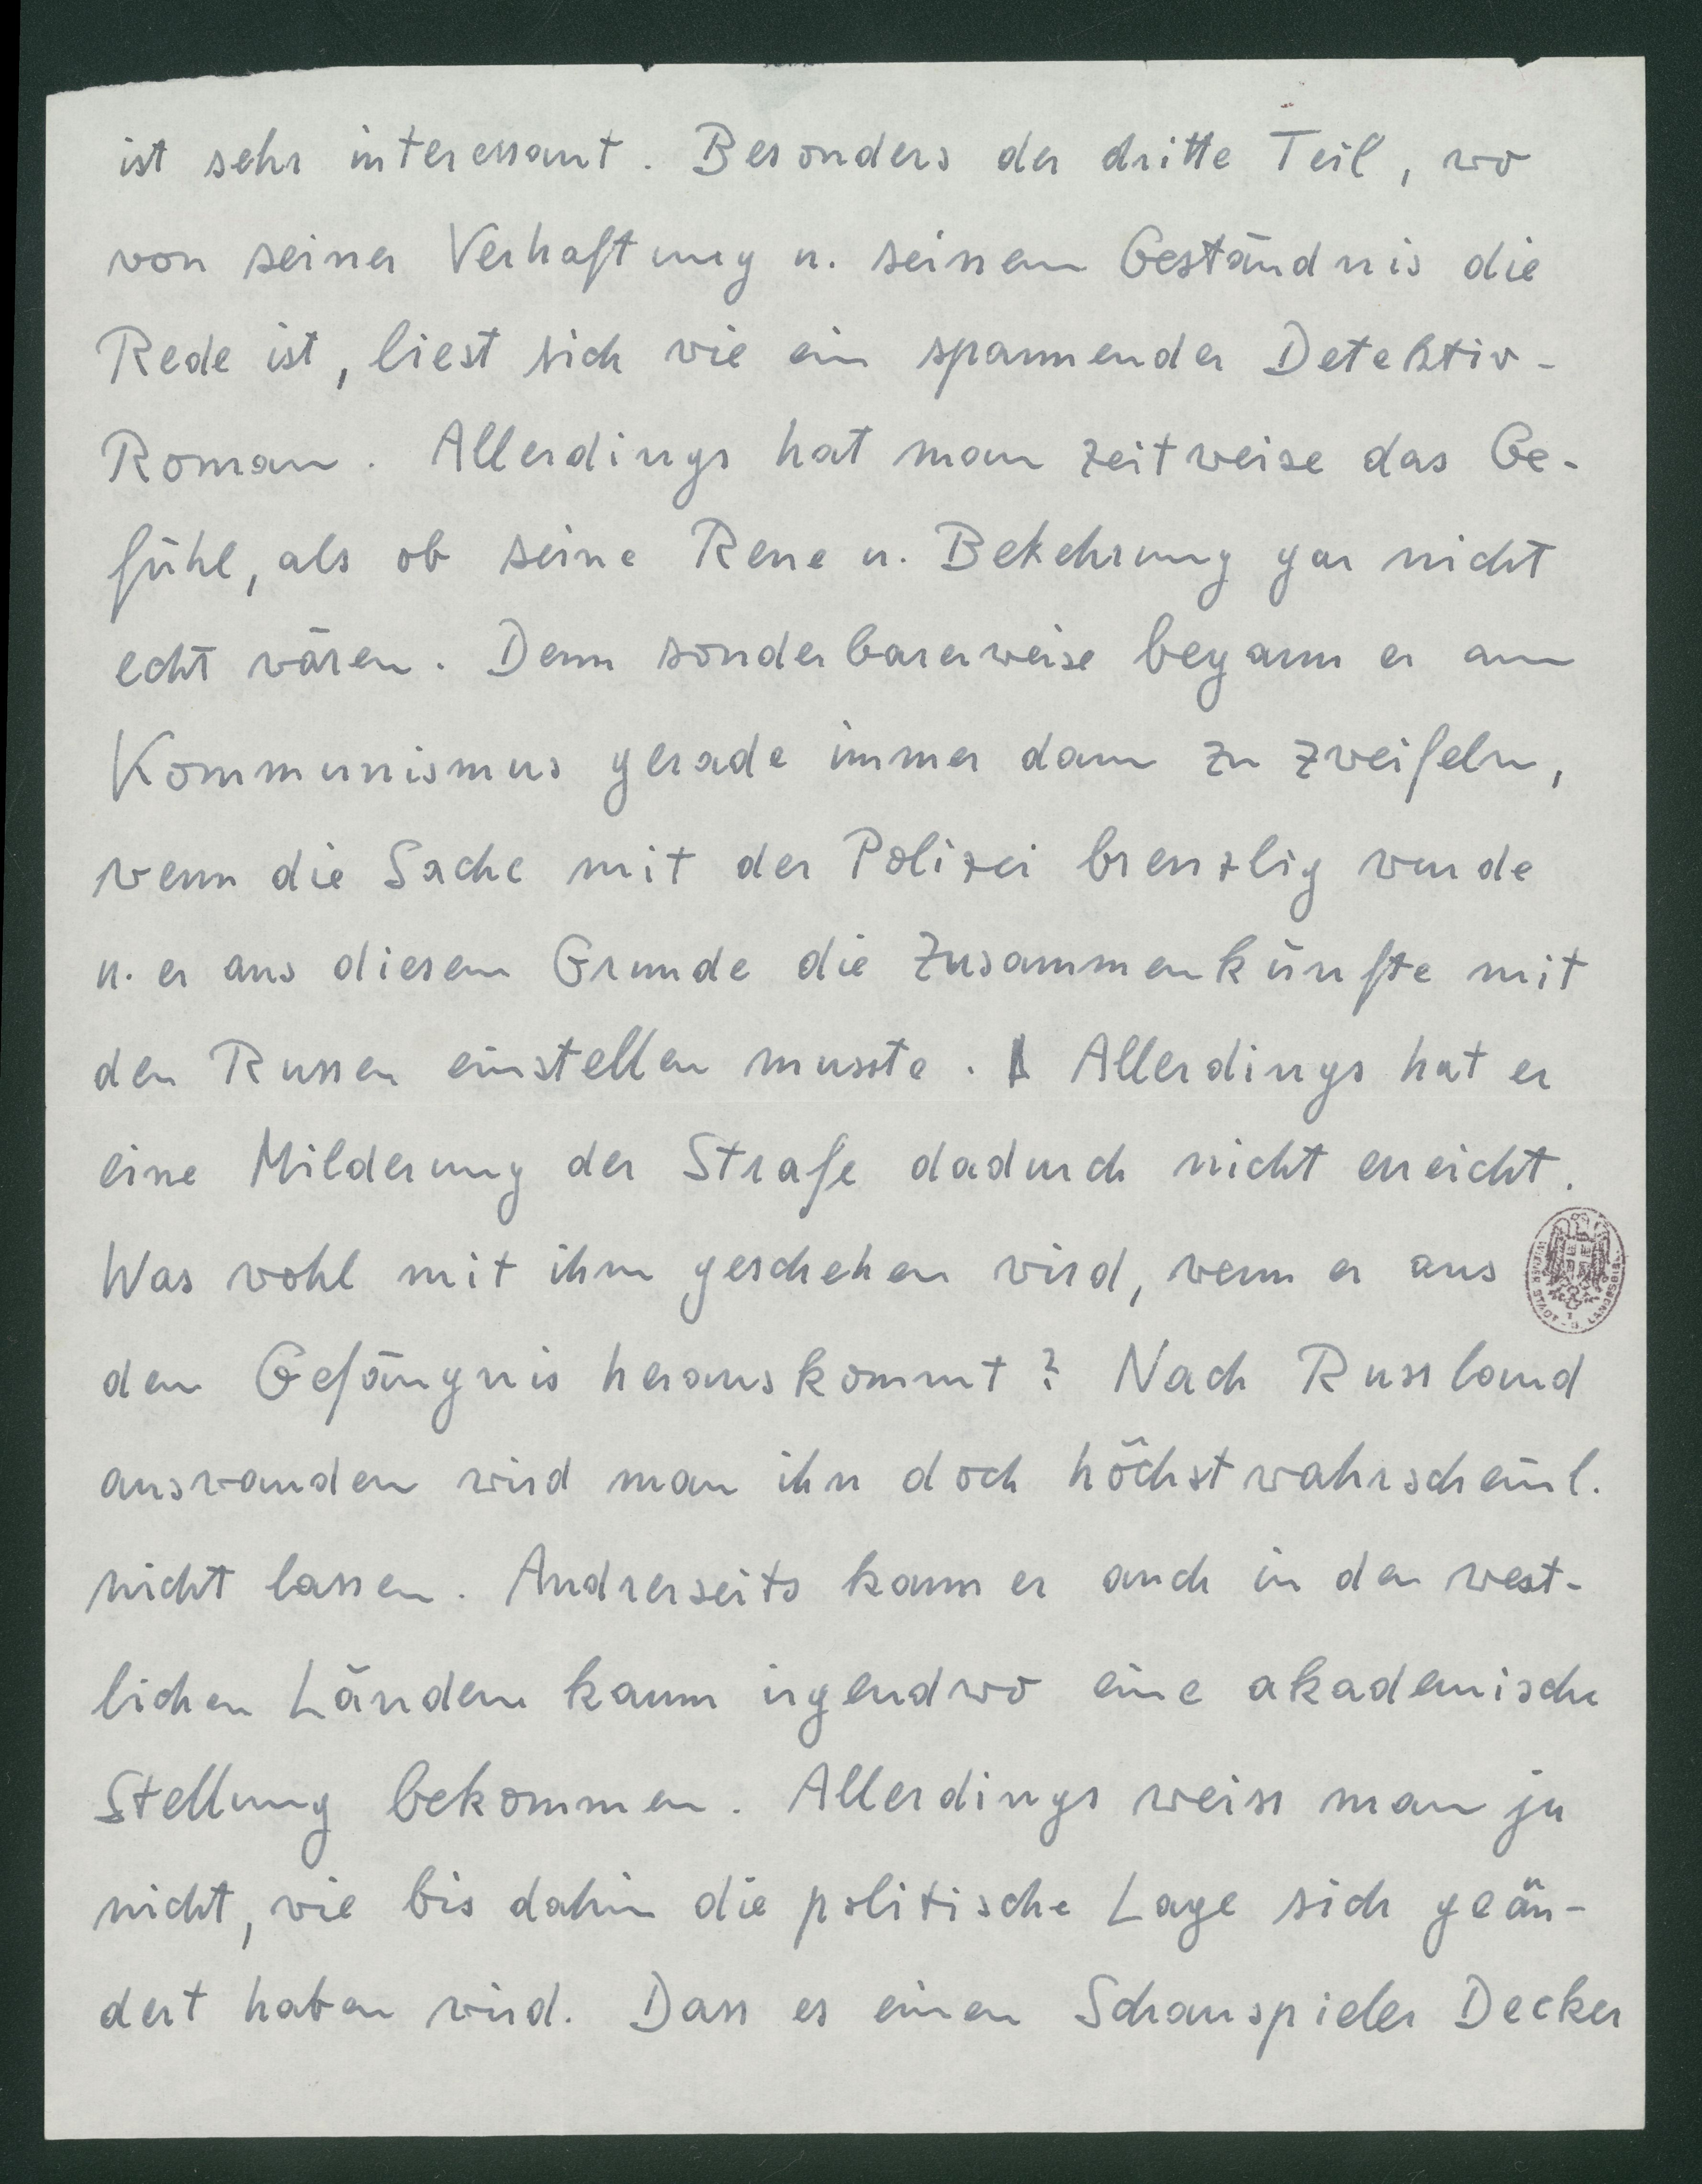 ist sehr interessant. Besonders der dritte Teil, wo
von seiner Verhaftung u. seinem Geständnis die
Rede ist, liest sich wie ein spannender Detektiv-
Roman. Allerdings hat man zeitweise das Ge-
fühl, als ob seine Reue u. Bekehrung gar nicht
echt wären. Denn sonderbarerweise begann er am
Kommunismus gerade immer dann zu zweifeln,
wenn die Sache mit der Polizei brenzlig wurde
u. er aus diesem Grunde die Zusammenkünfte mit
den Russen einstellen musste. Allerdings hat er
eine Milderung der Strafe dadurch nicht erreicht.
Was wohl mit ihm geschehen wird, wenn er aus
dem Gefängnis herauskommt? Nach Russland
auswandern wird man ihn doch höchstwahrscheinl.
nicht lassen. Andrerseits kann er auch in den west-
lichen Ländern kaum irgendwo eine akademische
Stellung bekommen. Allerdings weiss man ja
nicht, wie bis dahin die politische Lage sich geän-
dert haben wird. Dass es einen Schauspieler Decker